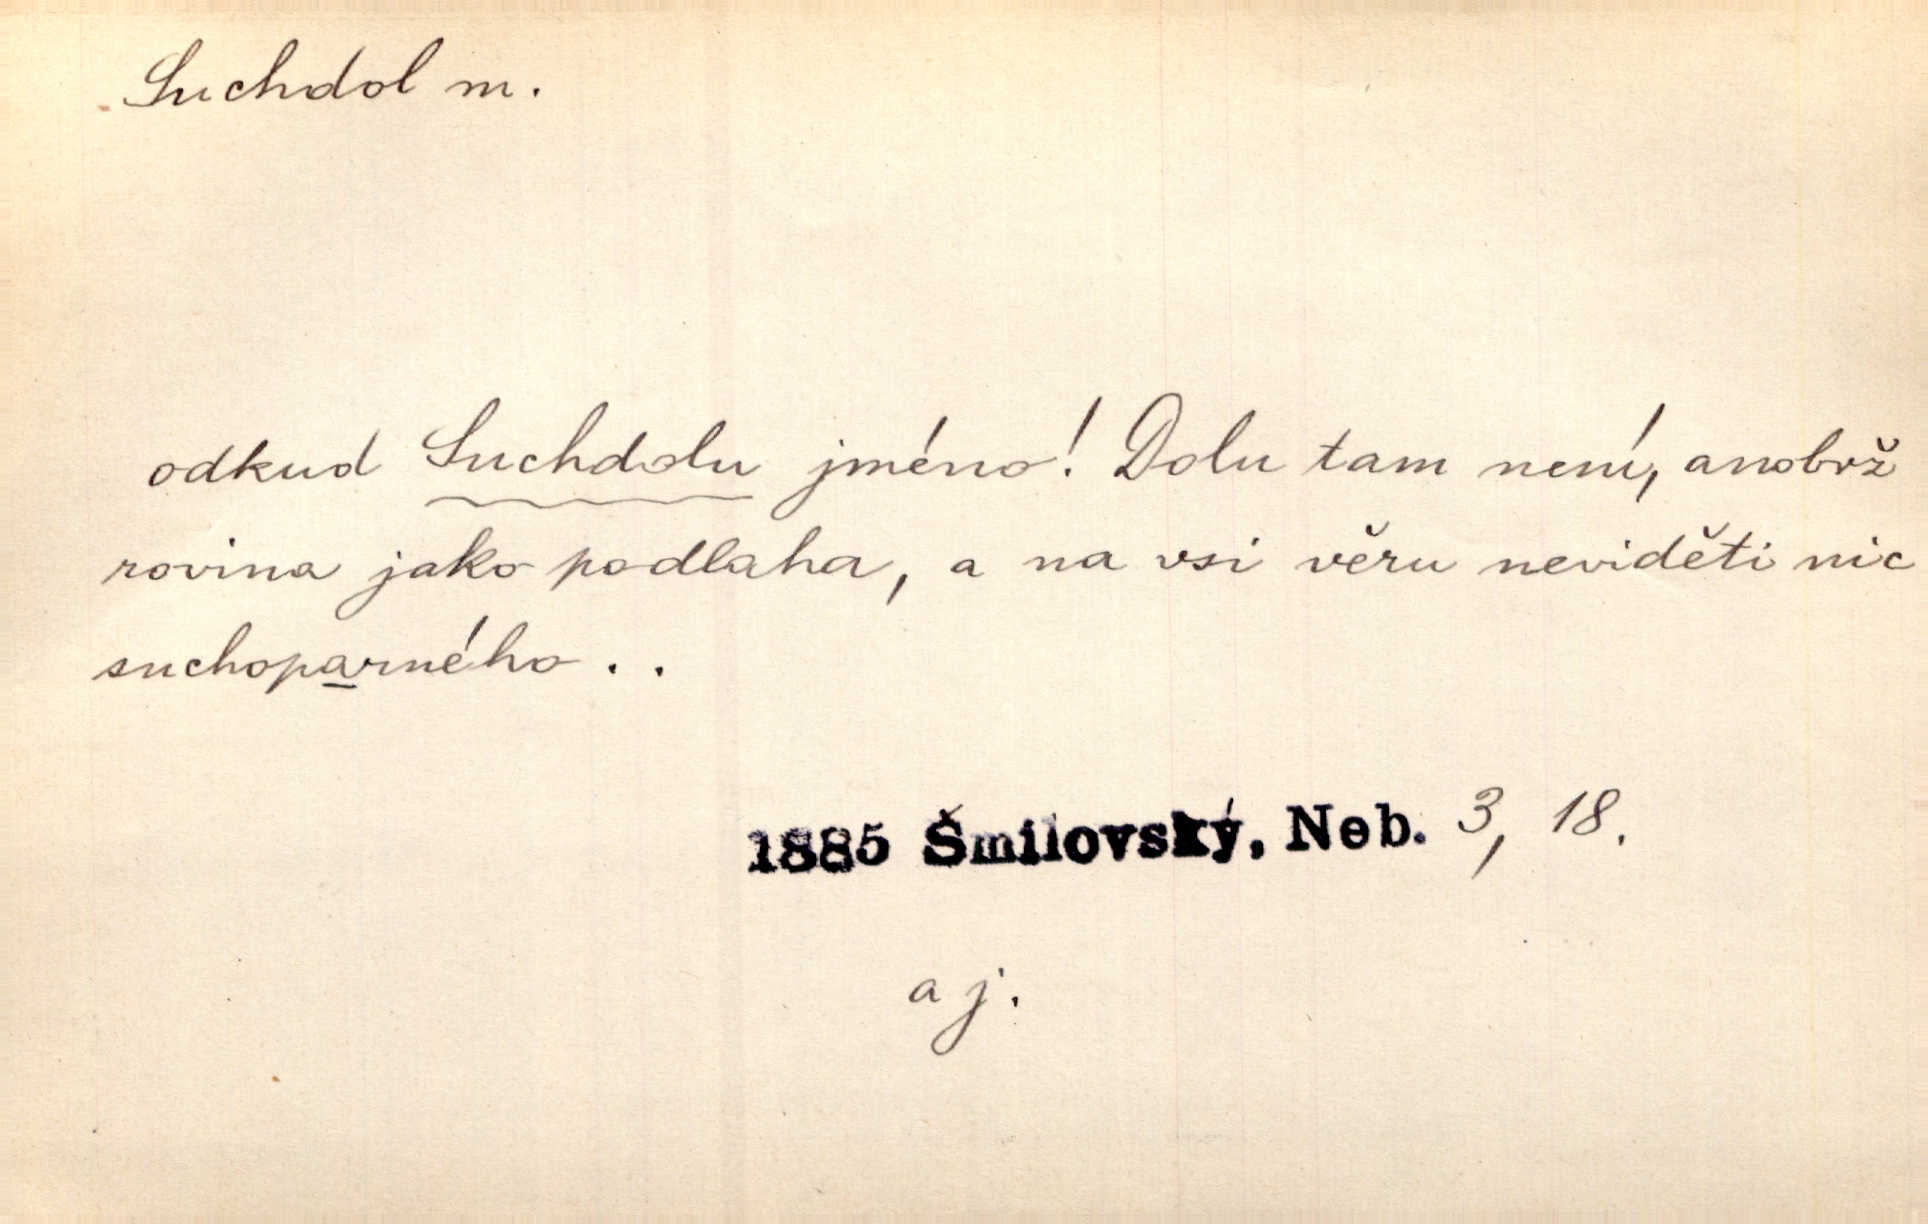 Suchdol m.
odkud Suchdolu jméno! Dolu tam není, anobrž
rovina jako podlaha, a na vsi věru neviděti nic
suchoparného . .
1885 Šmilovský, Neb. 3, 18.
a j.